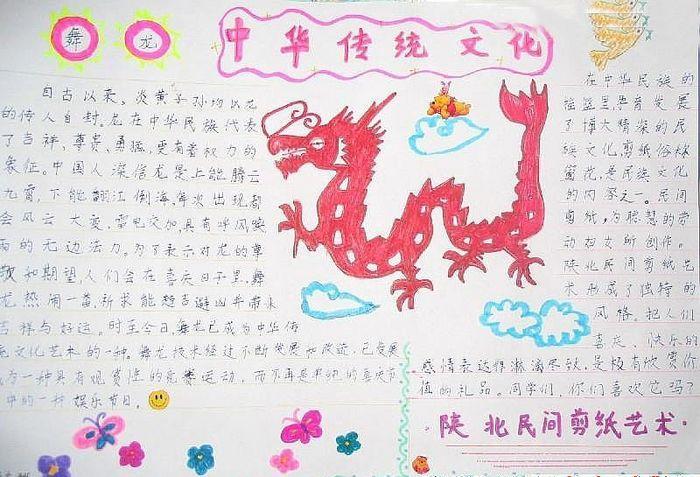 舞 龙
中华传统文化
自古以来,炎黄子孙均以龙
的传人自封。龙在中华民族代表
了吉祥、尊贵、勇猛,更有着权力的
象征。中国人深信龙是上能腾云
九霄,下能翻江倒海,每次出现都
会风云大变,雷电交加,具有呼风唤
雨的无边法力。为了表示对龙的尊
敬和期望,人们会在喜庆日子里,舞
龙,热闹一番,祈求能趋吉避凶并带来
吉祥与好运。时至今日,舞龙已成为中华传
统文化艺术的一种。舞龙技术经过不断发展和改造,已发展
为一种具有观赏性的竞赛运动,而不再是单纯的喜庆节
中的一种娱乐节目。
在中华民族的
摇篮里孕育发展
了博大精深的民
族文化,剪纸俗称
窗花,是民族文化
的内容之一。民间
剪纸,为聪慧的劳
动妇女所创作。
陕北民间剪纸艺
术形成了独特的
风格。把人们
喜庆、快乐的
感情表达得淋漓尽致,是极有欣赏价
值的礼品。同学们,你们喜欢它吗?
陕北民间剪纸艺术